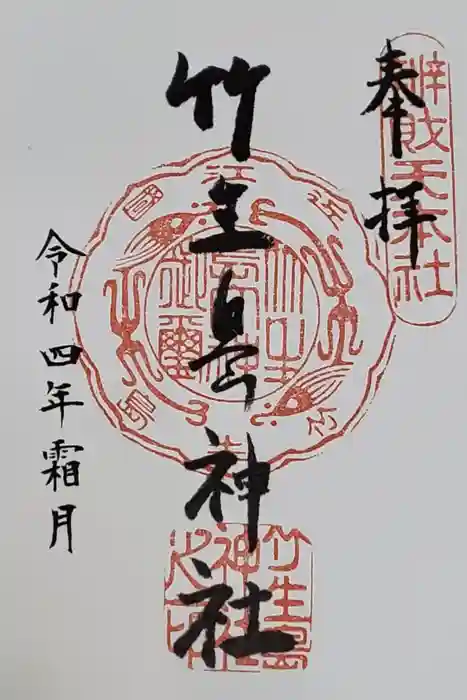 奉拝
辨財天本社
竹生島神社
近江國
竹生島神社之印
令和四年霜月